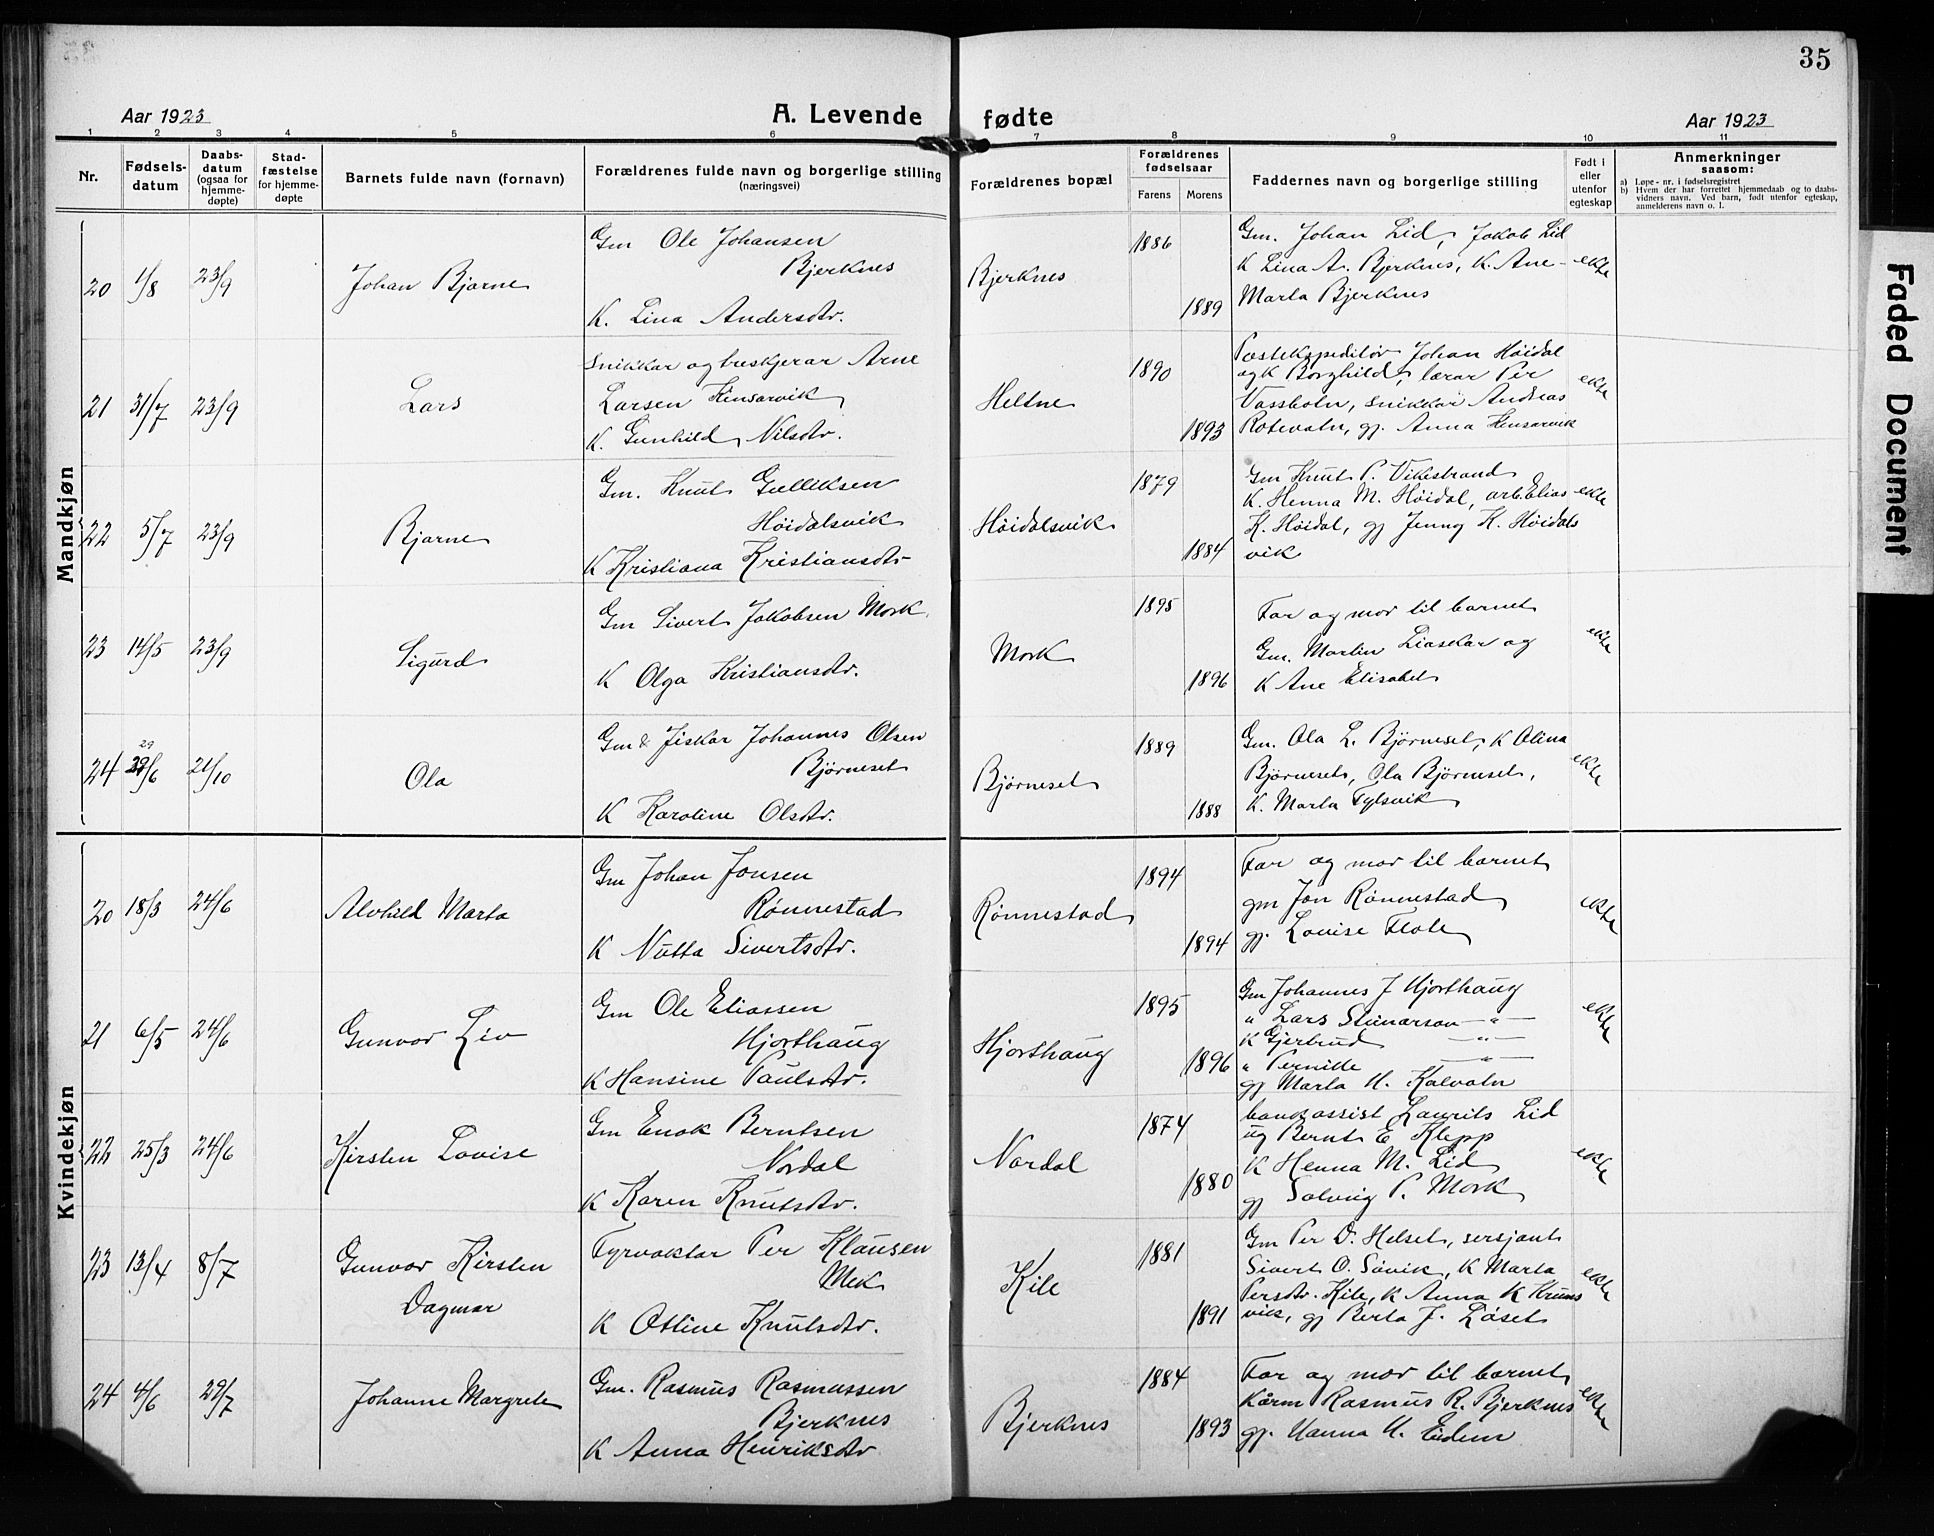 35
Aar 1923
A. Levende
fødte
Aar 1923
1 2 3 4 5 6 7 8 9 10 11
Nr.
Fødsels-
datum
Daabs-
datum
(ogsaa for
hjemme-
døpte)
Stad-
fæstelse
for hjemme-
døpte
Barnets fulde navn (fornavn)
Forældrenes fulde navn og borgerlige stilling
(næringsvei)
Forældrenes bopæl
Forældrenes
fødselsaar
Farens
Morens
Faddernes navn og borgerlige stilling
Født i
eller
utenfor
egteskap
Anmerkninger
saasom:
a) Løpe - nr. i fødselsregistret
b) Hvem der har forrettet hjemmedaab og to daabs-
vidners navn. Ved barn, født utenfor egteskap,
anmelderens navn o. l.
Faded Document
Mandkjøn
20 1/8 23/9
Johan Bjarne
Gm Ole Johansen
Bjerknes
K. Lina Andersdtr.
Bjerknes
1886
1889
Gm. Johan Lid, Jakob Lid
K Lina A. Bjerknes, K. Ane-
Marta Bjerknes
ekte
21 31/7 23/9
Lars
Snikkar og treskjerar Arne
Larsen Kinsarvik
K. Gunhild Nilsdtr.
Heltne
1890
1893
Postekspeditör Johan Höidal
og K Borghild, lærar Per
Vassbotn, snikkar Andreas
Rotevatn, gj. Anna Kinsarvik
ekte
22 5/7 23/9
Bjarne
Gm. Knut Gulliksen
Höidalsvik
K Kristiana Kristiansdtr
Höidalsvik
1879
1884
Gm Knut P. Vikestrand
K. Henna M. Höidal, arb. Elias
K. Höidal, gj Jenny K. Höidals
vik
ekte
23 14/5 23/9
Sigurd
Gm Sivert Jakobsen Mork
K Olga Kristiansdtr.
Mork
1895
1896
Far og mor til barnet
Gm. Martin Liaskar og
K Ane Elisabet
ekte
24 29/6 21/10
29
Ola
Gm & fiskar Johannes Olsen
Bjørneset
K Karoline Olsdtr.
Bjørneset
1889
1888
Gm. Ola L. Bjørneset, K Olina
Bjørneset, Ola Bjørneset,
K. Marta Fylsvik
ekte
Kvindekjøn
20 18/3 24/6
Alvhild Marta
Gm Johan Jonsen
Rønnestad
K Nutta Sivertsdtr.
Rönnestad
1894
1894
Far og mor til barnet
gm Jon Rönnestad
gj. Lovise Flote
ekte
21 6/5 24/6
Gunvor Liv
Gm Ole Eliassen
Hjorthaug
K Hansine Paulsdtr.
Hjorthaug
1895
1896
Gm Johannes J Hjorthaug
" Lars Steinarson — " —
K Gjertrud — " —
" Pernille — " —
gj Marta H. Kalvatn
ekte
22 25/3 24/6
Kirsten Lovise
Gm Enok Berntsen
Nordal
K Karen Knutsdtr.
Nordal
1874
1880
bankassist Laurits Lid
ug Bernt E Klepp
K Henna M. Lid
gj Solveig P. Mork
ekte
23 13/4 8/7
Gunvor Kirsten
Dagmar
Fyrvaktar Per Klausen
Mek
K Ostine Knutsdtr.
Kile
1881
1891
Gm Per D. Helset, sersjant
Sivert O. Sövik, K Marta
Persdtr. Kile, K Anna K Krums
vik, gj Berta J. Löset
ekte
24 4/6 29/7
Johanne Margrete
Gm. Rasmus Rasmussen
Bjerknes
K Anna Henriksdtr
Bjerknes
1884
1893
Far og mor til barnet
Kårm Rasmus R. Bjerknes
gj. Hanna H. Eidem
ekte